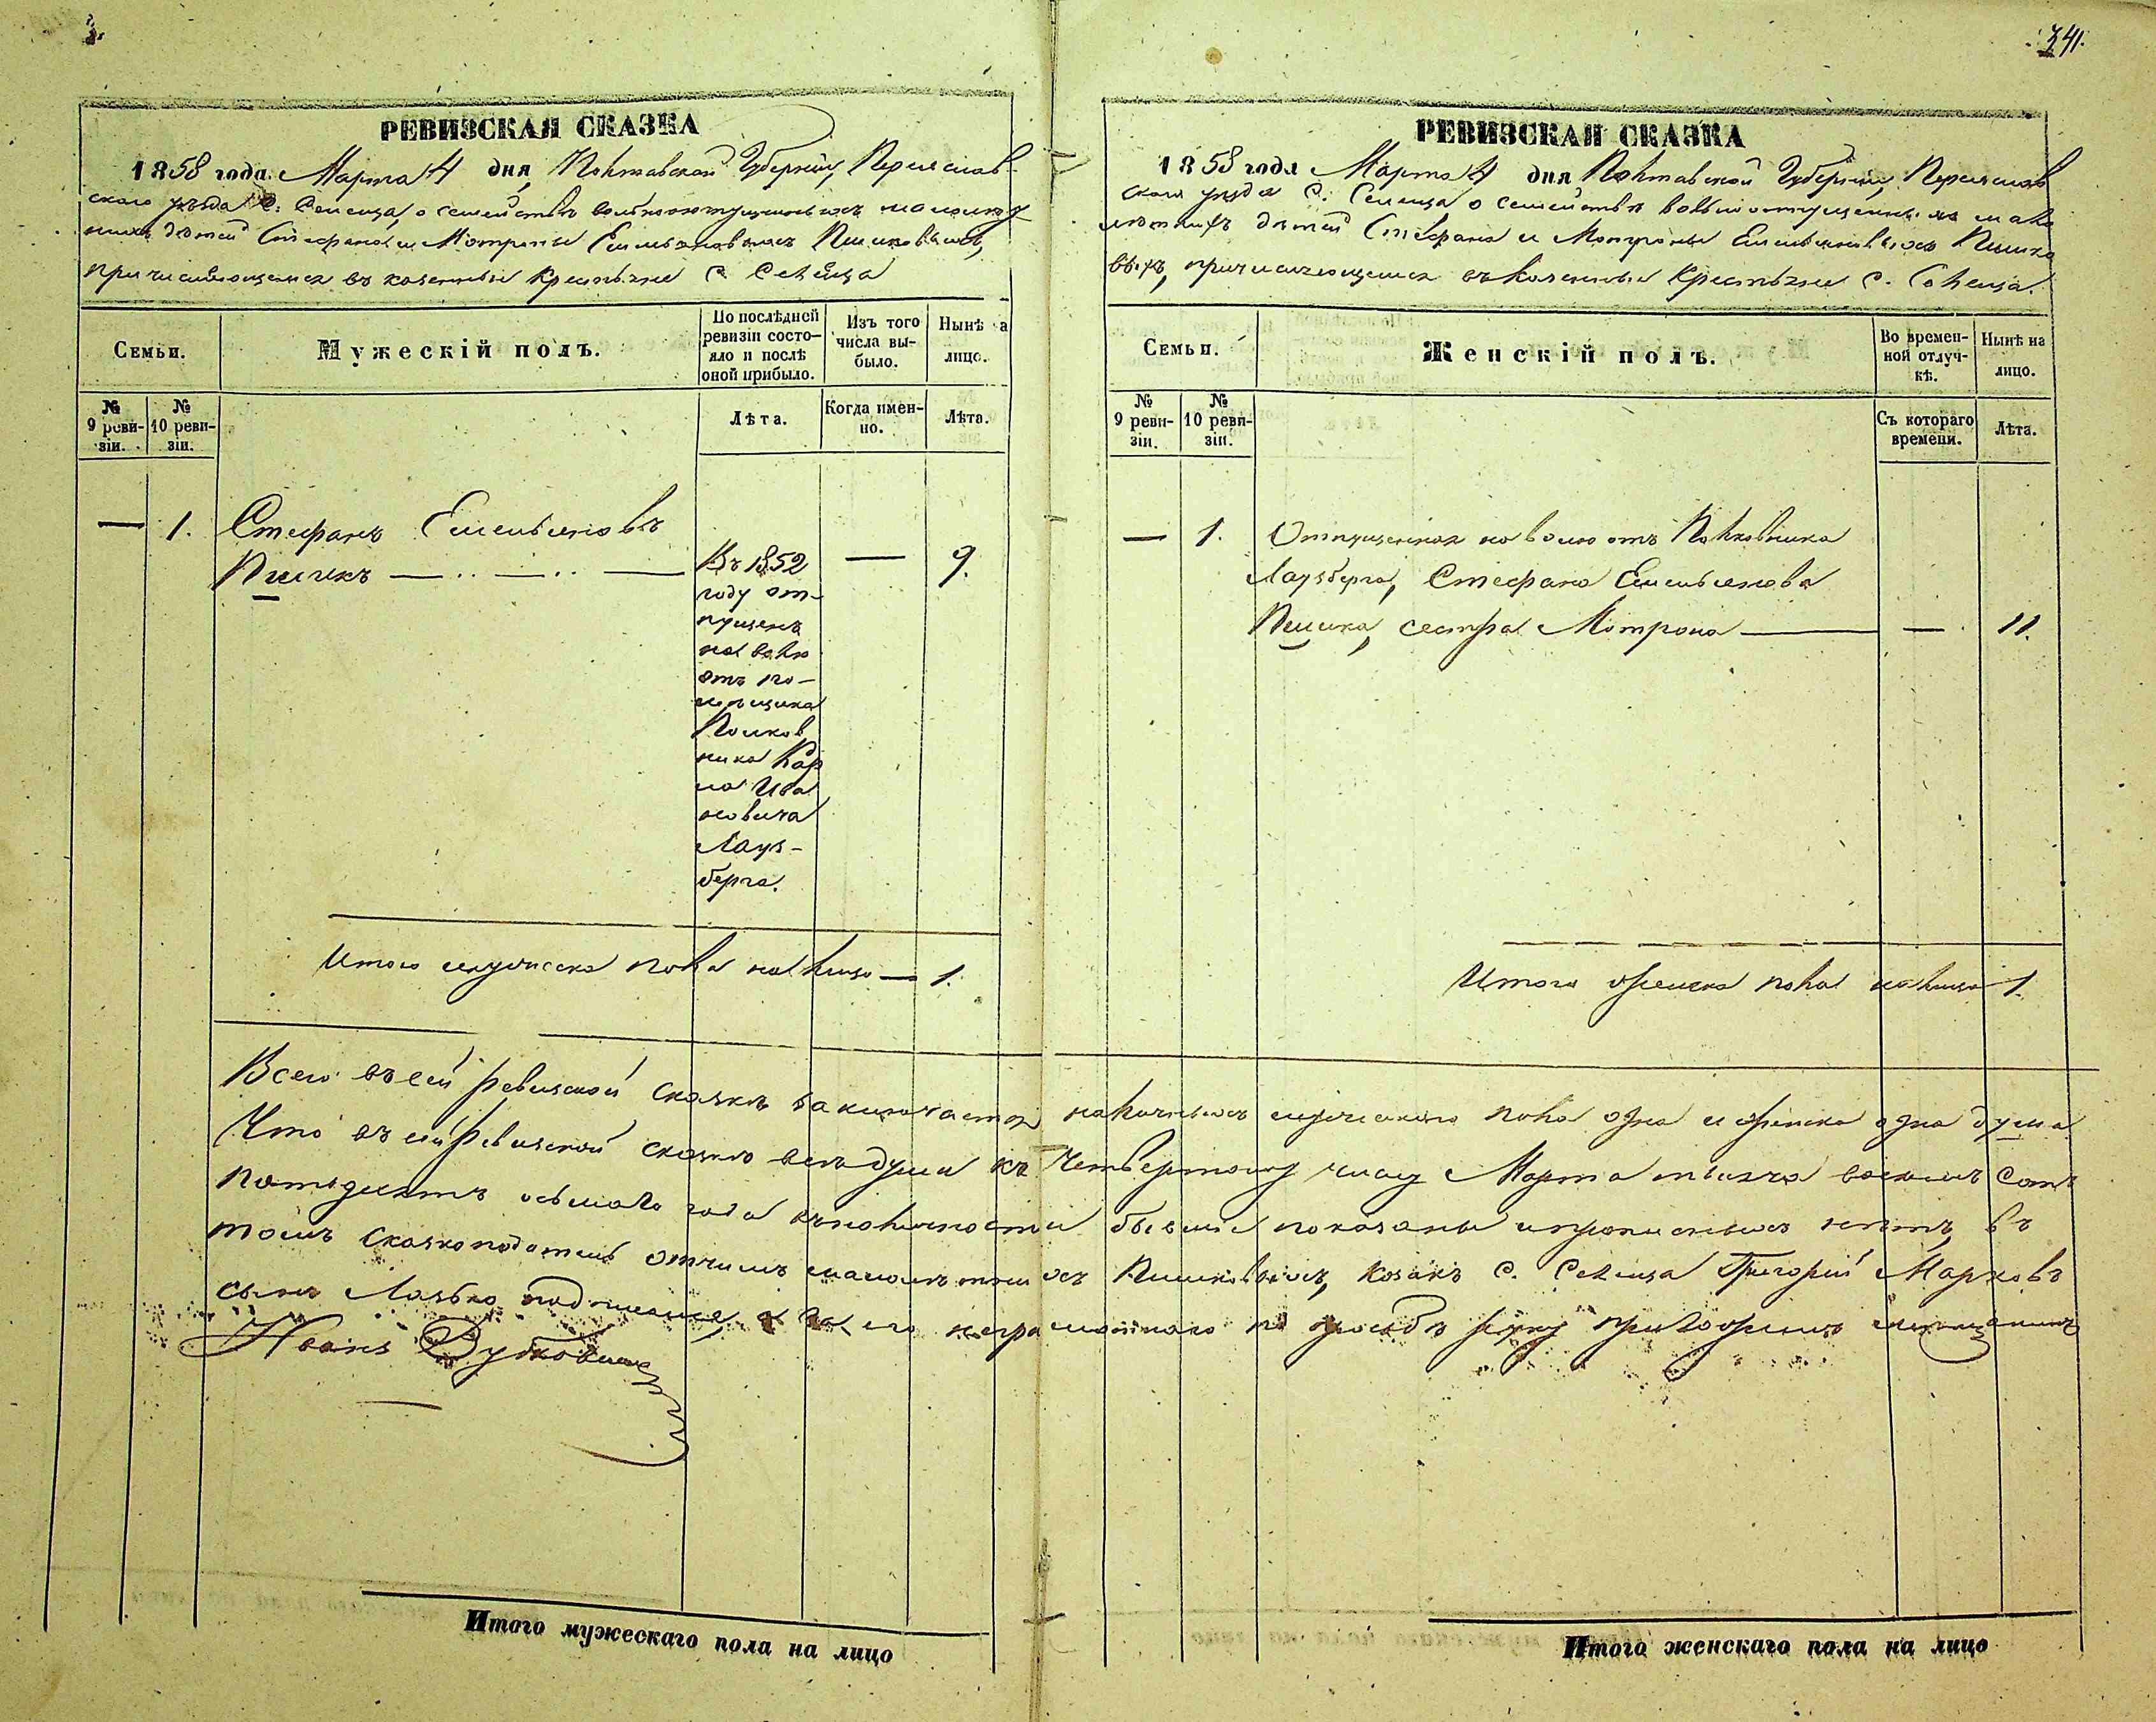 341.
РЕВИЗСКАЯ СКАЗКА
1858 года Марта 4 дня, Полтавской Губерніи, Переяслав-
скаго уезда С. Селеща, о семействе вольноотпущенныхъ малолет
нихъ детей Стефана и Мотроны Емельяновыхъ Пшиковыхъ,
причисляющемся въ казенные Крестьяне С. Селеща
Семьи.
Мужескій полъ.
По послѣдней ревизіи состо-яло и послѣ оной прибыло.
Изъ того числа вы-было.
Нынѣ на лицо.
№ 9 реви-зіи.
№ 10 реви-зіи.
Лѣта.
Когда имен-но.
Лѣта.
— 1. Стефанъ Емельяновъ
Пшикъ — .. — .. — Въ 1852 — 9.
году от-
пущенъ
на волю
отъ по-
мѣщика
Полков
ника Кар
ла Ива
новича
Лауз-
берга.
Итого мужеска пола на лицо — 1.
РЕВИЗСКАЯ СКАЗКА
1858 года Марта 4 дня Полтавской Губерніи, Переяслав
скаго уезда С. Селеща о семействе вольноотпущенныхъ мало
летнихъ детей Стефана и Мотроны Емельяновыхъ Пшико
выхъ, причисляющемся въ казенные Крестьяне С. Селеща.
Семьи.
Женскій полъ.
Во времен-ной отлуч-кѣ.
Нынѣ на лицо.
№ 9 реви-зіи.
№ 10 реви-зіи.
Съ котораго времени.
Лѣта.
— 1. Отпущенная на волю отъ Полковника
Лаузберга, Стефана Емельянова
Пшика, сестра Мотрона — — 11.
Итого женска пола на лицо 1.
Всего въ сей ревизской сказке заключается наличныхъ мужескаго пола одна и женска одна душа
Что въ сей ревизской сказке все души къ Четвертому числу Марта тысяча восемь сотъ
пятьдесятъ осьмаго года въ наличности бывшіе показаны и прописныхъ нетъ, въ
томъ сказкоподатель отчимъ малолетнихъ Пшиковыхъ, козакъ С. Селеща Григорій Марковъ
сынъ Лазько подписался, а за его неграмотного по прозбе руку приложилъ мещанинъ
Иванъ
Итого мужескаго пола на лицо
Итого женскаго пола на лицо